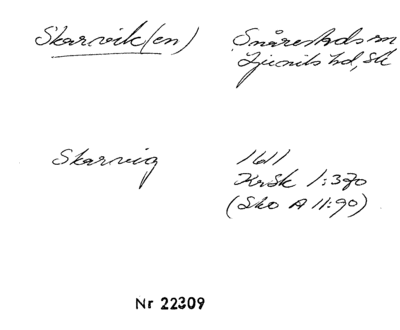 Skarvik(en) Snårestads sn
Ljunits hd, Sk
Skarvig 1611
KrSk 1:370
(Sko A 11:90)
Nr 22309